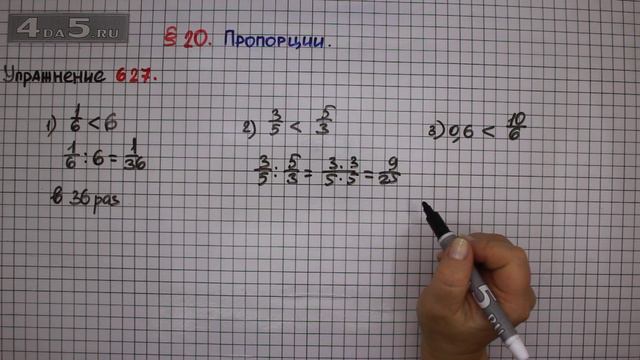 4DA5.RU
§ 20. Пропорции.
Упражнение 627.
1) 1/6 < 6
1/6 : 6 = 1/36
в 36 раз
2) 3/5 < 5/3
3/5 : 5/3 = 3·3/5·5 = 9/25
3) 0,6 < 10/6